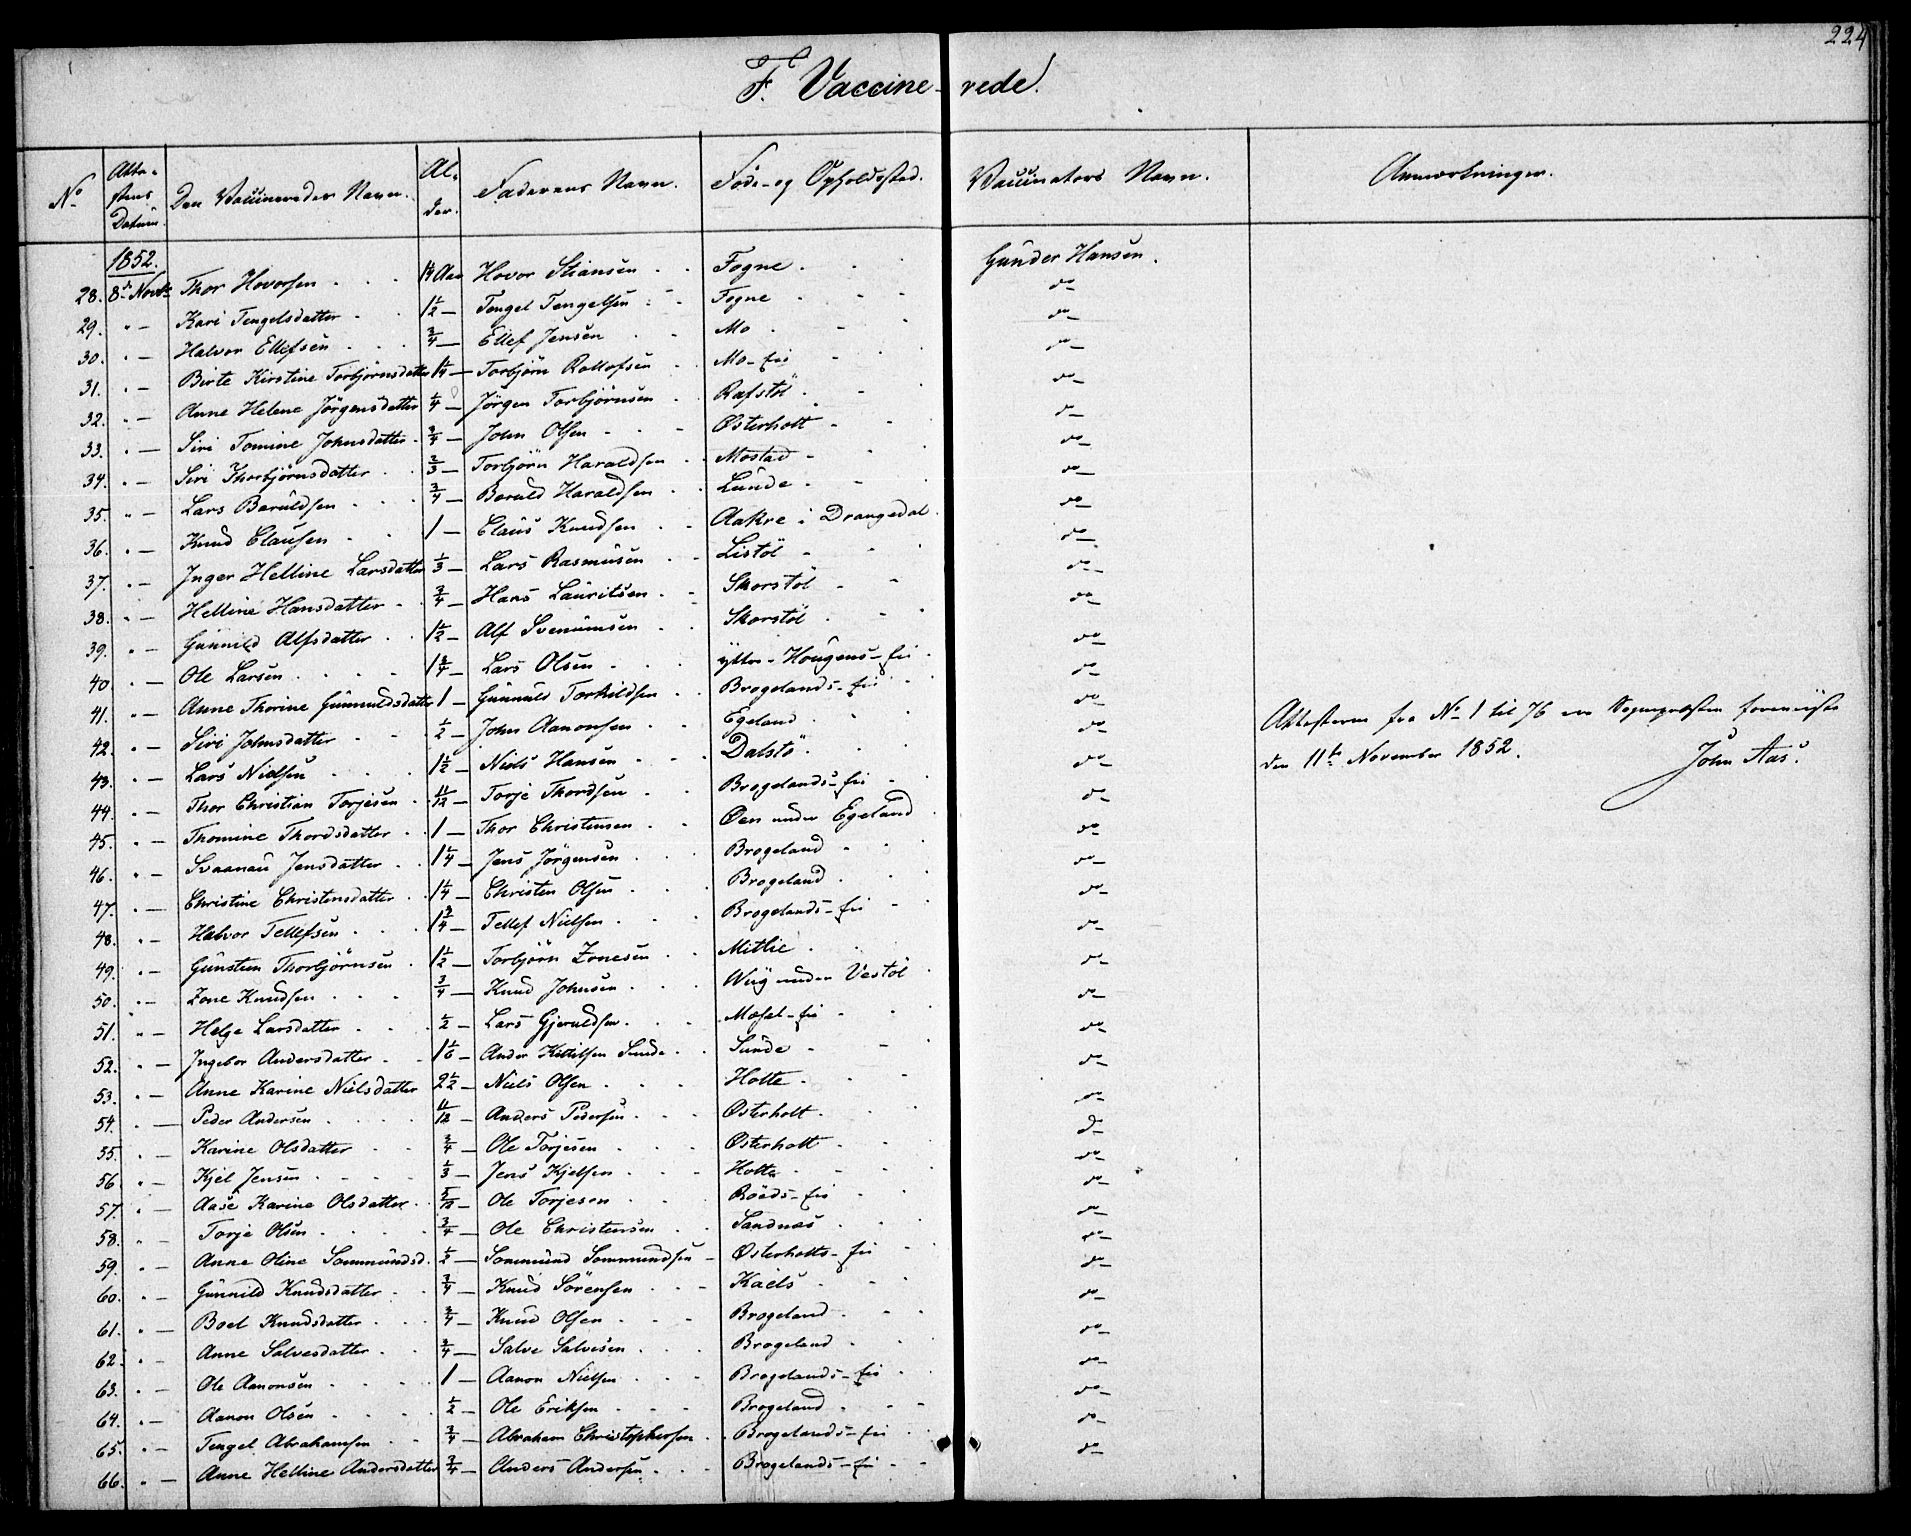 224
F. Vaccine-rede.
No Atte-stens Datum. Den Vaccineredes Navn. Al-der. Faderens Navn. Föde- og Opholdssted. Vaccinators Navn. Anmærkninger.
1852.
28. 8de Novbr Thor Hovorsen 1/4 Aar Hovor Stiansen Fogne Gunder Hansen.
29. " — Kari Tengelsdatter 1 1/2 — Tengel Tengelsen Fogne do
30. " — Halvor Ellefsen 3/4 — Ellef Jensen Mo do
31. " — Birte Kirstine Torbjörnsdatter 1 1/4 — Torbjörn Rollofsen Mo-fie do
32. " — Anne Helene Jörgensdatter 1/4 — Jörgen Torbjörnsen Rafstöl do
33. " — Siri Tomine Johnsdatter 3/4 — John Olsen Østerholt do
34. " — Siri Thorbjörnsdatter 2/3 — Torbjörn Haraldsen Mostad do
35. " — Lars Baruldsen 3/4 — Baruld Haraldsen Lunde do
36. " — Knud Clausen 1 — Claus Knudsen Aakre i Drangedal do
37. " — Inger Helline Larsdatter 1/3 — Lars Rasmusen Listöl do
38. " — Helline Hansdatter 3/4 — Hans Lauritsen Skorstöl do
39. " — Gunnild Alfsdatter 1 1/2 — Alf Svenumsen Skorstöl do
40. " — Ole Larsen 1 3/4 — Lars Olsen ytter-Hougens-fie do
41. " — Anne Thorine Gunnuldsdatter 1 — Gunnuld Torkildsen Brogelands-fie do
42. " — Siri Johnsdatter 1/2 — John Aanonsen Egeland do
43. " — Lars Nielsen 1 1/2 — Niels Hansen Dalstö do
44. " — Thor Christian Torjesen 11/12 — Torje Thordsen Brogelands-fie do
45. " — Thomine Thordsdatter 1 — Thor Christensen Øen under Egeland do
46. " — Svaanau Jensdatter 1 1/4 — Jens Jörgensen Brogeland do
47. " — Christine Christensdatter 1 1/4 — Christen Olsen Brogeland do
48. " — Halvor Tellefsen 1 3/4 — Tellef Nielsen Brogelands-fie do
49. " — Gunsten Thorbjörnsen 1 1/2 — Torbjörn Zonesen Mitlie do
50. " — Zone Knudsen 3/4 — Knud Johnsen Wiig under Vestöl do
51. " — Helge Larsdatter 1/2 — Lars Gjeruldsen Mosel-fie do
52. " — Ingebor Andersdatter 1 1/6 — Ander Kittilsen Sunde Sunde do
53. " — Anne Karine Nielsdatter 2 1/2 — Niels Olsen Holte do
54. " — Peder Andersen 11/12 — Anders Pedersen Østerholt do
55. " — Karine Olsdatter 3/4 — Ole Torjesen Østerholt do
56. " — Kjel Jensen 1/3 — Jens Kjelsen Holte do
57. " — Aase Karine Olsdatter 5/12 — Ole Torjesen Röeds-fie do
58. " — Torje Olsen 3/4 — Ole Christensen Sandnæs do
59. " — Anne Oline Sommundsd. 1/2 — Sommund Sommundsen Østerholts-fie do
60. " — Gunnild Knudsdatter 3/4 — Knud Sörensen Kaels do
61. " — Boel Knudsdatter 3/4 — Knud Olsen Brogeland do
62. " — Anne Salvesdatter 3/4 — Salve Salvesen Brogeland do
63. " — Ole Aanonsen 1 — Aanon Nielsen Brogelands-fie do
64. " — Aanon Olsen 1/2 — Ole Eriksen Brogeland do
65. " — Tengel Abrahamsen 3/4 — Abraham Christophersen Brogelands-fie do
66. " — Anne Helline Andersdatter 3/4 — Anders Andersen Brogelands-fie do
Attesterne fra No 1 til 76 ere Sognepræsten foreviiste
den 11te November 1852. John Aas.